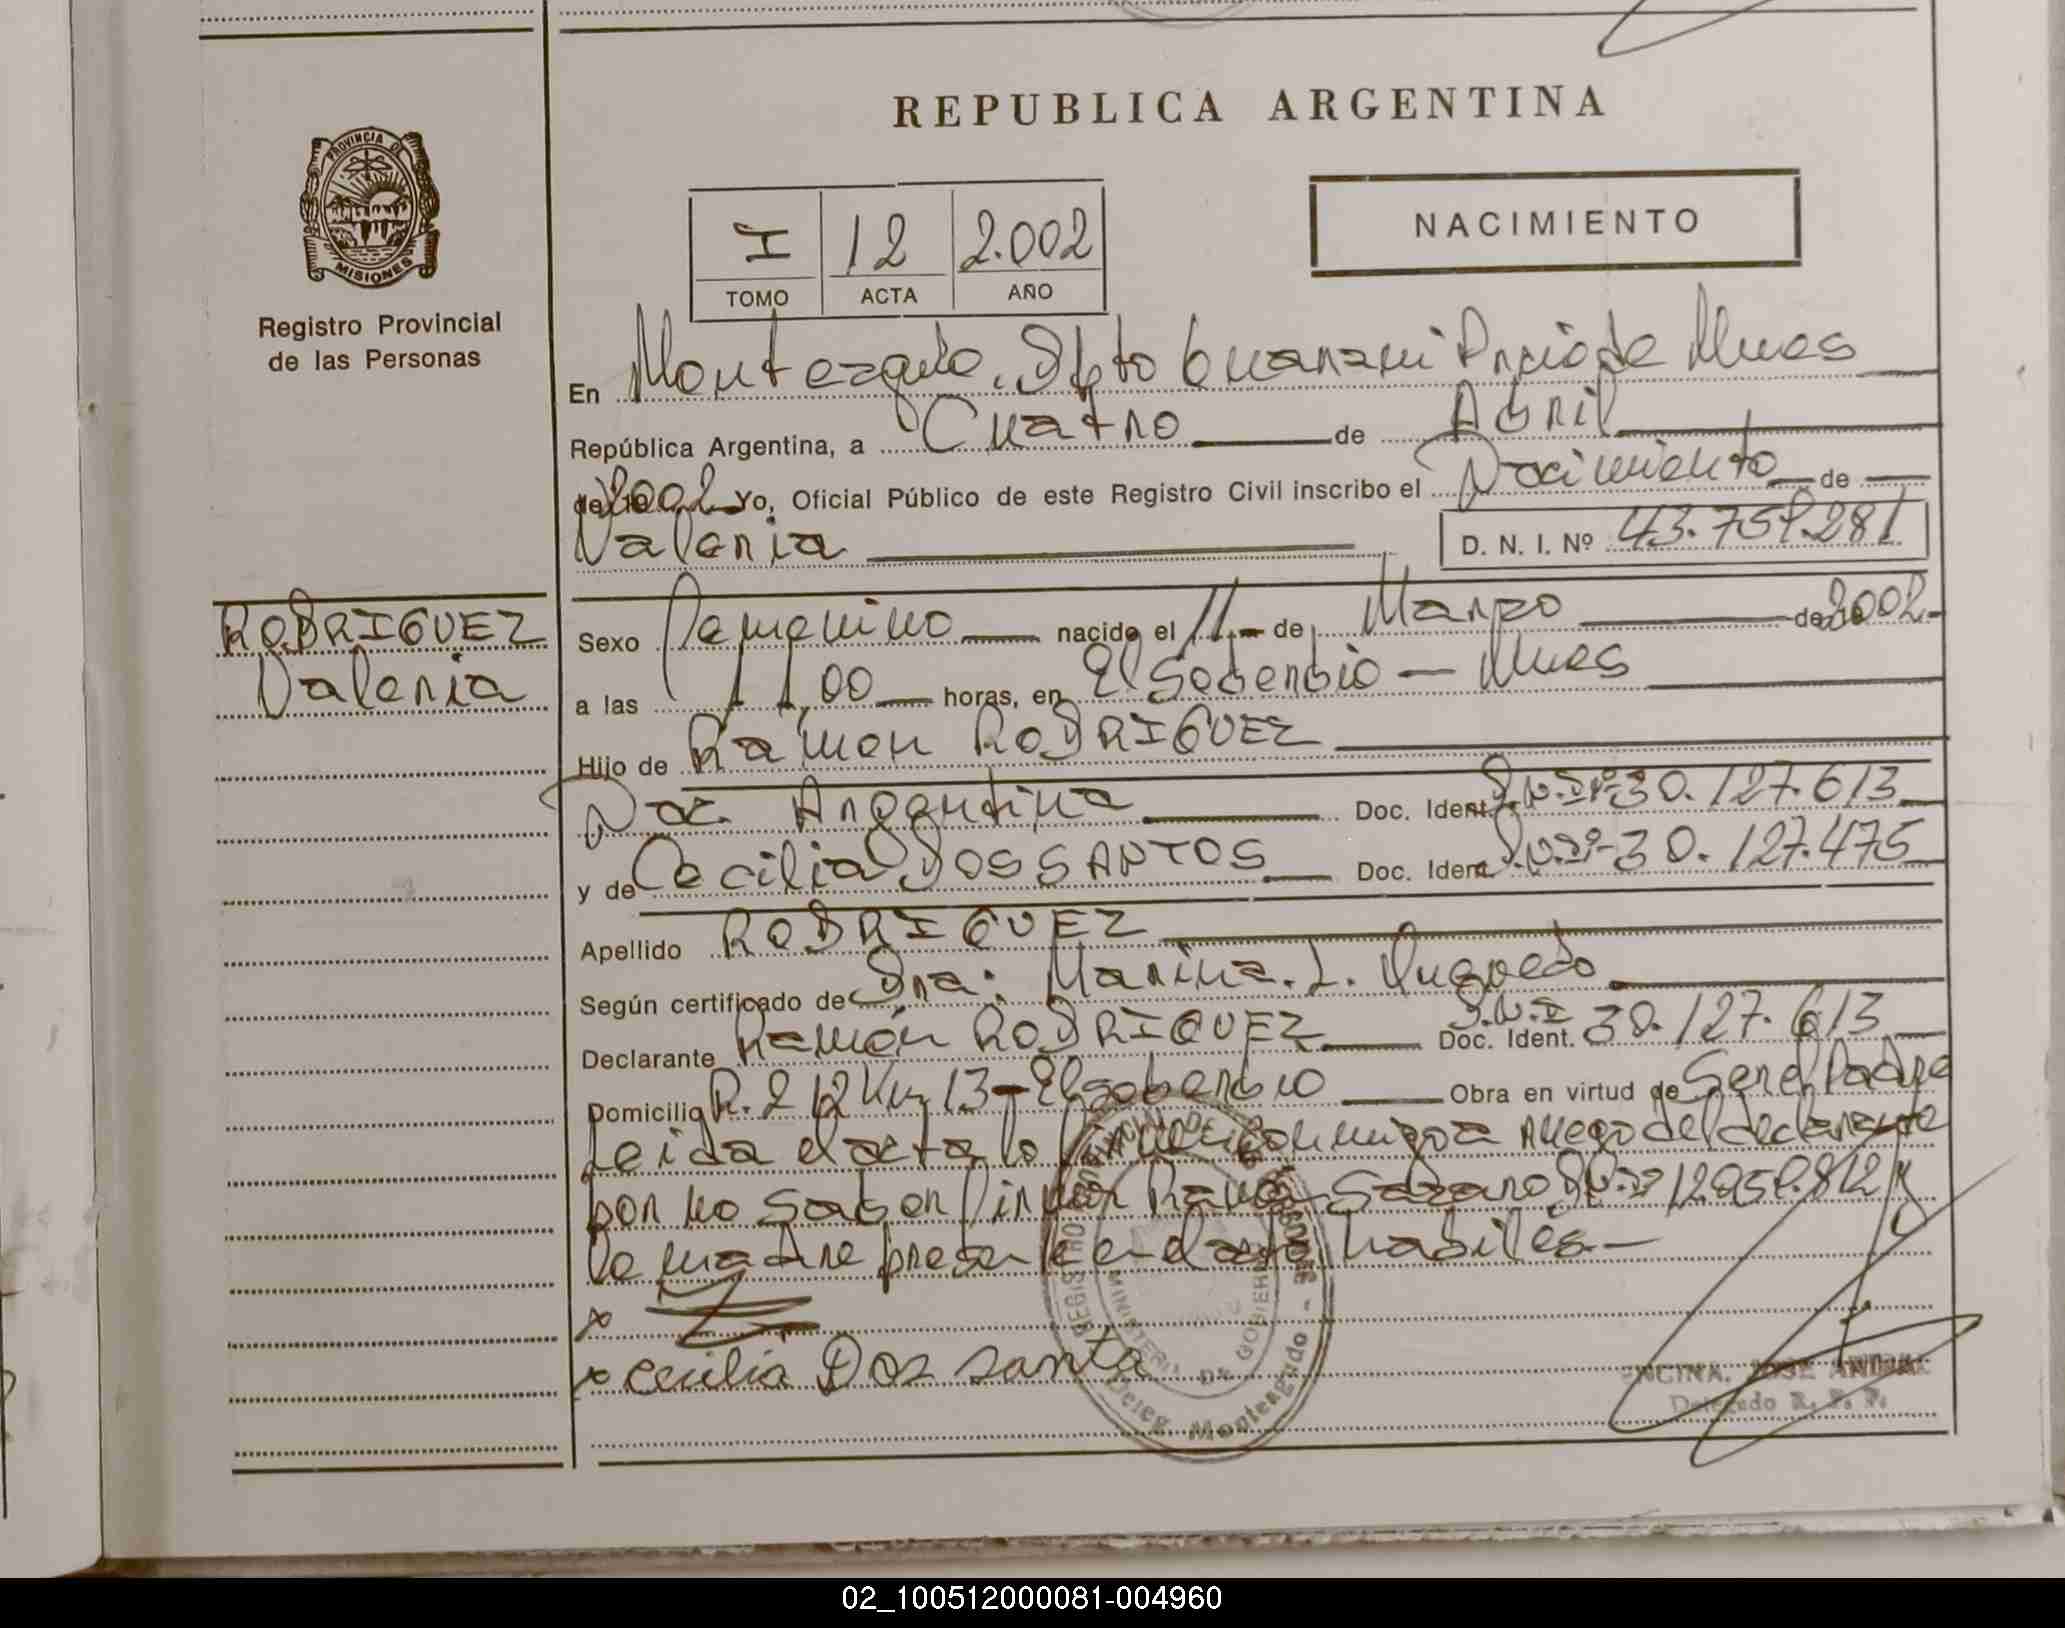 REPUBLICA ARGENTINA
PROVINCIA DE MISIONES
Registro Provincial
de las Personas
NACIMIENTO
I 12 2.002
TOMO ACTA AÑO
En Monteagudo, Dpto Guarani Pncia de Mnes
República Argentina, a Cuatro de Abril
de 2002 Yo, Oficial Público de este Registro Civil inscribo el Nacimiento de
Valeria D. N. I. Nº 43.759.281
RODRIGUEZ
Valeria
Sexo Femenino nacido el 11 de Marzo de 2002
a las 11,00 horas, en El Soberbio - Mnes
Hijo de Ramón RODRIGUEZ
Nac. Argentina Doc. Ident. D.N.I Nº 30.127.613
y de Cecilia DOS SANTOS Doc. Ident. D.N.I Nº 30.127.475
Apellido RODRIGUEZ
Según certificado de Dra: Marina. L.
Declarante Ramón RODRIGUEZ Doc. Ident. D.N.I 30.127.613
Domicilio R. 2 Km 13 - El soberbio Obra en virtud de Ser el Padre
Leida el acta lo firma conmigo a ruego del declarante
por no saber firmar Ramón D.N.I 12.959.812 y
la madre presente en el acto, habiles.-
x
x cecilia Dos santo
REGISTRO MINISTERIO DE GOBIERNO
Deleg. Monteagudo
ENCINA, JOSE ANIBAL
Delegado R. P. P.
02_100512000081-004960